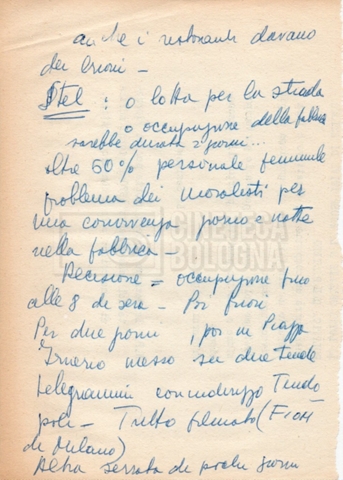 anche i ristoranti davano
dei buoni -
Stel : o lotta per la strada
o occupazione della fabbrica
sarebbe durata 2 giorni...
oltre 60% personale femminile
problema dei moralisti per
una convivenza giorno e notte
nella fabbrica -
Decisione = occupazione fino
alle 8 di sera - Poi fuori
Per due giorni, poi in Piazza
messo su due tende
telegrammi con indirizzo Tendo
poli - Tutto filmato (FIOM
di Milano)
Altra serrata di pochi giorni
CINETECA
BOLOGNA